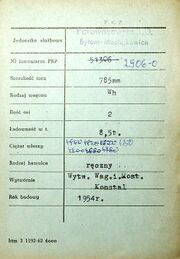 P. K. P.
Jednostka służbowa
Nr inwentarza PKP 51306 2906-0
Szerokość toru 785mm
Rodzaj wagonu Wh
Ilość osi 2
Ładowność w t. 8,5t.
Ciężar własny
Rodzaj hamulca ręczny
Wytwórnia Wytw. Wag.i.Most.
Konstal
Rok budowy 1954r.
htm 3 1192-62 6000